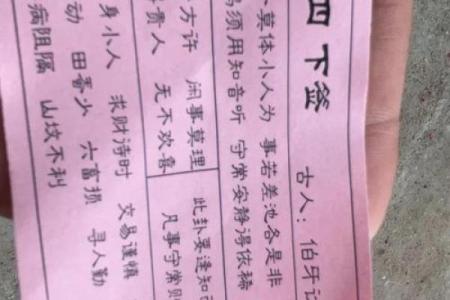 四 下签
古人：伯牙访
莫体小人为 事若差池各是非
须用知音听 守常安静得依稀
方许 闲事莫理 此卦要逢知
贵人 无不欢喜 凡事守常则
身小人 求财待时 交易谨慎
动 田蚕少 六畜损 寻人勤
病阻隔 山坟不利